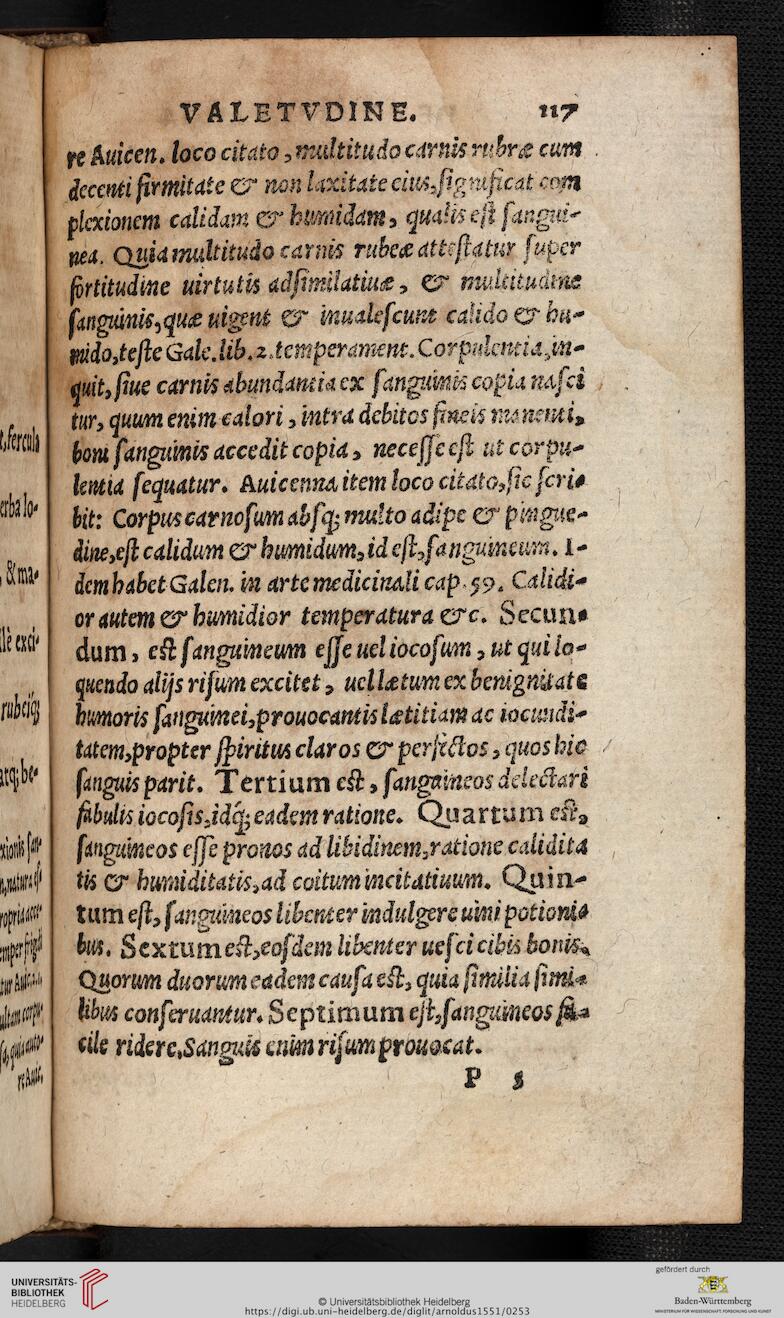 VALETVDINE. 117
re Auicen. loco citato, multitudo carnis rubræ cum
decenti firmitate & non laxitate eius, significat com
plexionem calidam & humidam, qualis est sangui-
nea. Quia multitudo carnis rubeæ attestatur super
fortitudine uirtutis adsimilatiuæ, & multitudine
sanguinis, quæ uigent & inualescunt calido & hu-
mido, teste Gale. lib. 2. temperament. Corpulentia, in-
quit, siue carnis abundantia ex sanguinis copia nasci
tur, quum enim calori, intra debitos fineis manenti,
boni sanguinis accedit copia, necesse est ut corpu-
lentia sequatur. Auicenna item loco citato, sic scri-
bit: Corpus carnosum absq; multo adipe & pingue-
dine, est calidum & humidum, id est, sanguineum. I-
dem habet Galen. in arte medicinali cap. 59. Calidi-
or autem & humidior temperatura &c. Secun-
dum, est sanguineum esse uel iocosum, ut qui lo-
quendo alijs risum excitet, uel lætum ex benignitate
humoris sanguinei, prouocantis lætitiam ac iocundi-
tatem, propter spiritus claros & perfectos, quos hic
sanguis parit. Tertium est, sanguineos delectari
fabulis iocosis, idq́; eadem ratione. Quartum est,
sanguineos esse pronos ad libidinem, ratione calidita
tis & humiditatis, ad coitum incitatiuum. Quin-
tum est, sanguineos libenter indulgere uini potioni-
bus. Sextum est, eosdem libenter uesci cibis bonis.
Quorum duorum eadem causa est, quia similia simi-
libus conseruantur. Septimum est, sanguineos fa-
cile ridere. Sanguis enim risum prouocat.
P 5
UNIVERSITÄTS-
BIBLIOTHEK
HEIDELBERG
© Universitätsbibliothek Heidelberg
https://digi.ub.uni-heidelberg.de/diglit/arnoldus1551/0253
gefördert durch
Baden-Württemberg
MINISTERIUM FÜR WISSENSCHAFT, FORSCHUNG UND KUNST